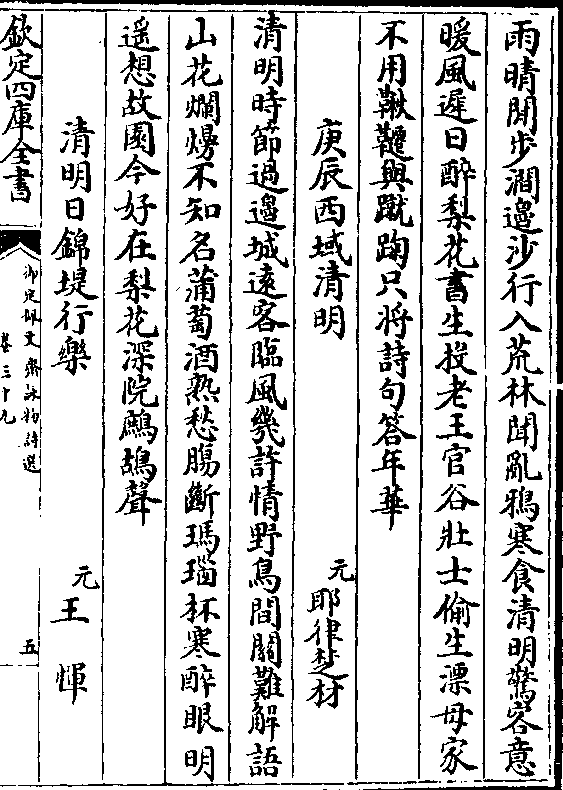 雨晴閒步澗邊沙行入荒林聞亂鴉寒食清明驚客意
暖風遲日醉梨花書生投老王官谷壯士偷生漂母家
不用鞦韆與蹴踘只將詩句答年華
庚辰西域清明 元耶律楚材
清明時節過邊城遠客臨風幾許情野鳥間關難解語
山花爛熳不知名蒲萄酒熟愁腸斷瑪瑙杯寒醉眼明
遥想故園今好在梨花深院鷓鴣聲
清明日錦堤行樂 元王惲
欽定四庫全書
御定佩文齋詠物詩選
卷三十九
五